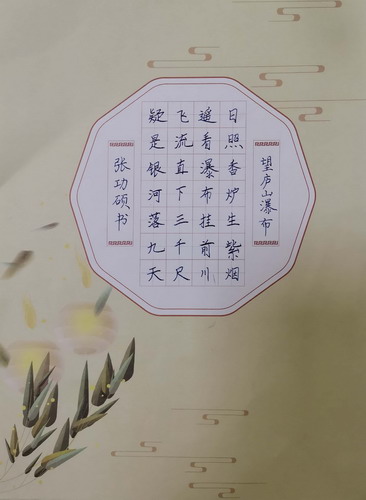 望庐山瀑布
日照香炉生紫烟
遥看瀑布挂前川
飞流直下三千尺
疑是银河落九天
张功硕书